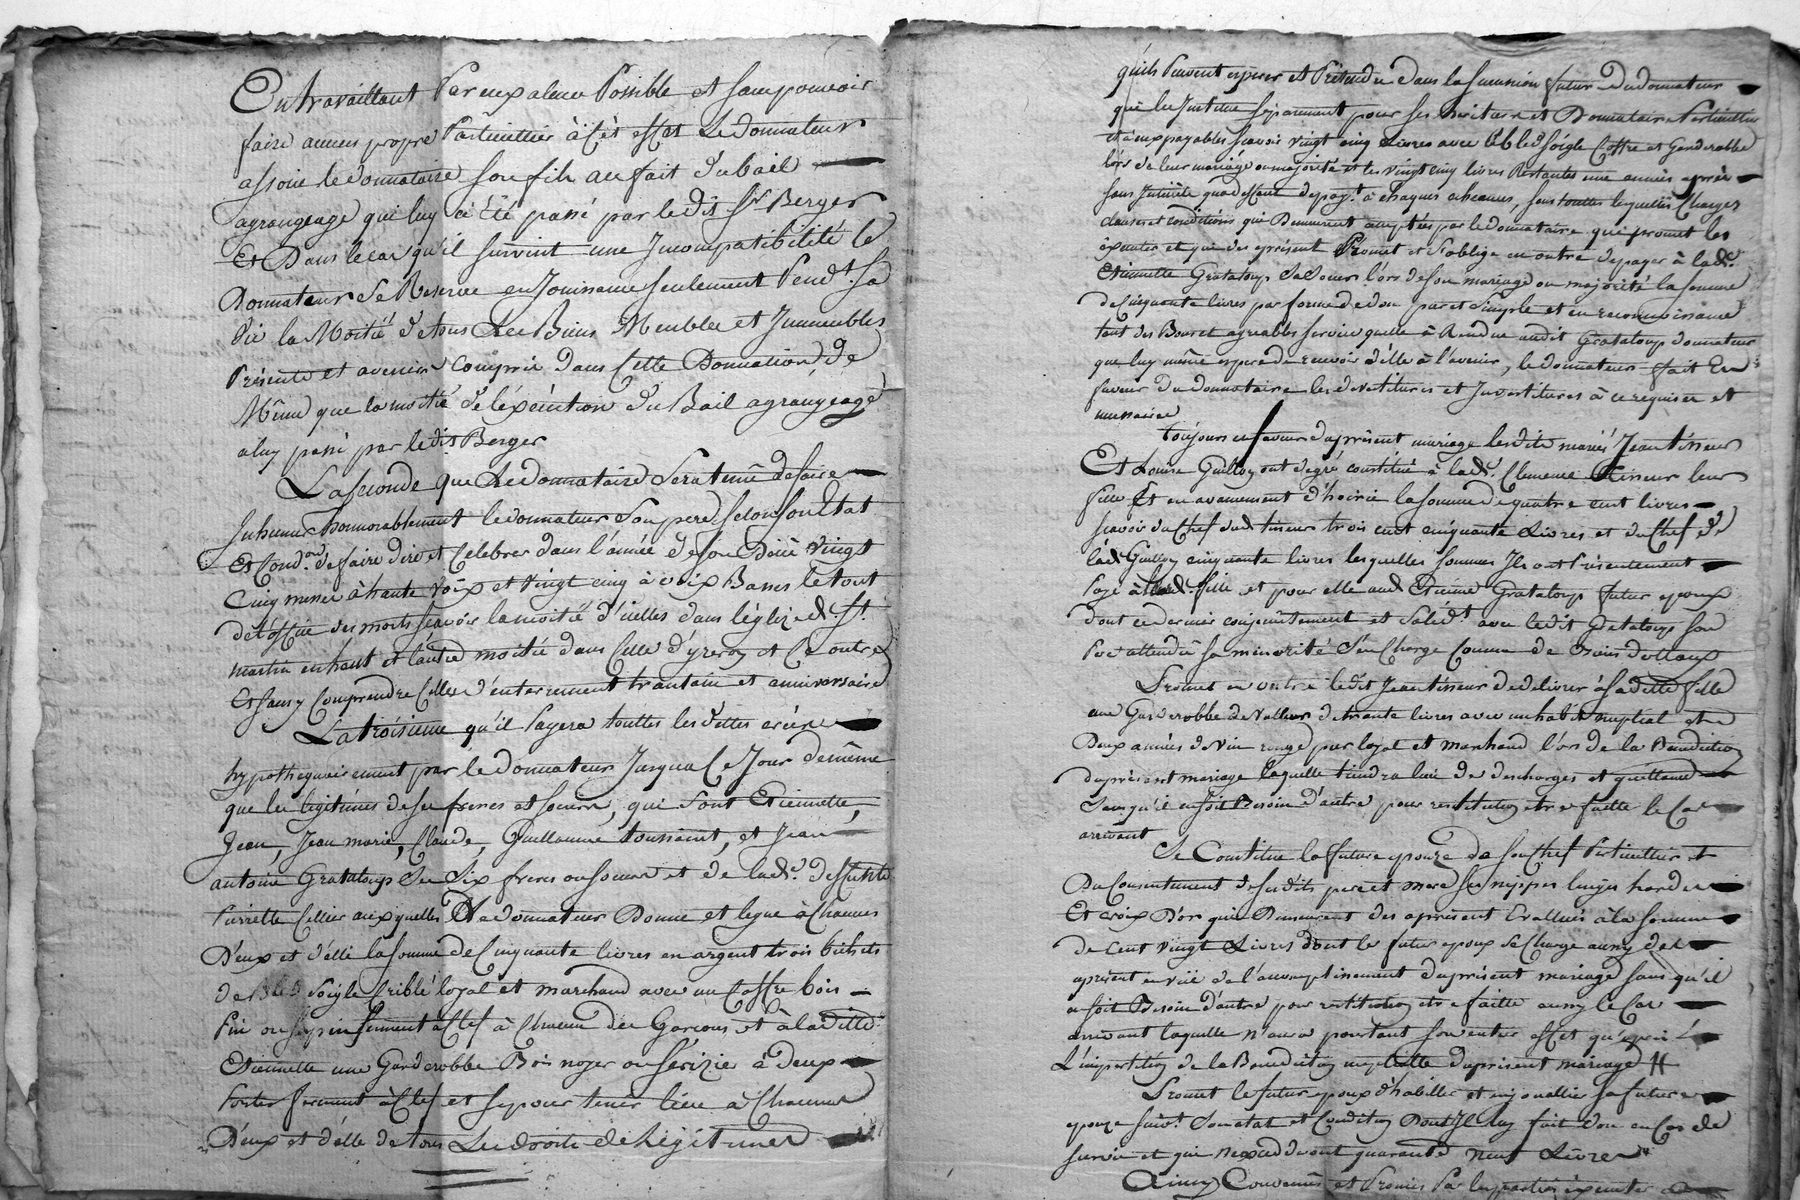 En travaillant Par eux a leur Possible et sans pouvoir
faire aucun propre Particullier à Cès effet Le donnateur
assoçie le donnataire son fils au fait du bail
agrangeage qui luy à Été passé par ledit Sr Berger
Et Dans le cas qu'il survint une Jncompatibilité le
Donnateur Se Reserve en Jouissance seulement Pendt. sa
Vie la Moitié de tous Les Biens Meubles et Jmmeubles
Présents et avenir Compris dans Cette Donnation, de
Même que la moitié de l'éxécution du Bail agrangeage
a luy passé par ledit Berger
La seconde que Le donnataire Sera tenû de faire
Jnhumer honnorablement le donnateur Son pere selon son Etat
Et Condon. de faire dire et Celebrer dans l'année de son Déces vingt
Cinq messes à haute voix et vingt cinq à voix Basses le tout
de l'office des morts sçavoir la moitié d'icelles dans l'églize d. St.
martin en haut et l'autre moitié dans Celle d'yzeron et Ce outre
Et sans y Comprendre Celles d'enterrement trantain et anniversaire
La troisieme qu'il Payera touttes les dettes créées
hypothequairement par le donnateur Jusqua Ce Jour de même
que les legitimes de ses freres et soeurs, qui sont Etiennette,
Jean, Jean marie, Claude, Guillaume toussaint, et Jean
antoine Grataloup Ses Six freres ou soeurs et de lade. deffunte
Pierrette Cellier auxquelles Le donnateur Donne et legue à Chacuns
D'eux et d'élle la somme de Cinquante livres en argent trois bichets
de Bled Soigle Criblé loyal et marchand avec un Coffre bois
Pin ou sapin fermant a Clef à Chacun des Garçons et à laditte
Etiennette une Garderobbe Bois noyer ou Serizier à deux
Portes fermant à Clef et se pour tenir lieu à Chacuns
D'eux et d'élle de tous Les droits de Légitimes
qu'ils Peuvent esperer et Prétendre dans la succession future Du donnateur
que les Jnstitue separement pour ses heritiers et Donnataires Particulliers
et à eux payables sçavoir vingt cinq Livres avec le bled soigle Coffre et Garderobbe
lors de leur mariage ou majorité et les vingt cinq livres Restantes une année après
sans Jnterêts que deffaut de payt. à chaques echeances, sous touttes lesquelles Charges
clauses et conditions qui Demeurent acceptées par le donnataire qui promet les
éxécuter et que des apresent Promet et s'oblige en outre de payer à lade.
Etiennette Grataloup Sa soeur lors de son mariage ou majorité la somme
de Cinquante livres par forme de don pur et simple et en reconnoissance
tant des Bons et agreables services quelle à Rendue audit Grataloup donnateur
que luy même espere de recevoir d'élle à l'avenir, le donnateur fait En
faveur du donnataire les devetitures et Jnvestitures à ce requises et
necessaires
Toujours en faveur du present mariage lesdits mariés Jean tisseur
Et Louise Guillou ont de gré constitué à lade. Clemence Tisseur leur
fille Et en avancement d'hoirie la somme de quatre cent livres
sçavoir du Chef dud. tisseur trois cent cinquante Livres et du Chef de
lade Guillou cinquante livres lesquelles sommes Jls ont Présentement
Payé à lade. fille et pour elle aud Etienne Grataloup futur epoux
dont ce dernier conjointement et Solidt. avec ledit Grataloup son
Pere attendû sa minorité S'en Charge Comme de Deniers dottaux
Promet en outre ledit Jean tisseur de delivrer à sa ditte fille
une Garderobbe de Valleur de trante livres avec un habit nuptial et
Deux années de vin rouge pur loyal et marchand lors de la Benediction
du present mariage laquelle tiendra lieu de descharges et quittance
sans qu'il en soit Besoin d'autre pour restitution etre faitte le Cas
arrivant
Se Constitue la future epouze de son Chef Particullier et
Du Consentement de sesdits pere et mere ses nippes linges hardes
Et croix D'or qui Demeurent des apresent Evallués à la somme
de cent vingt Livres dont le futur epoux se Charge aussy des
apresent en vüe de l'accomplissement du present mariage sans qu'il
en soit Besoin d'autre pour restitution etre faitte aussy le Cas
arrivant laquelle n'aura pourtant son entier effet qu'après
L'impartition de la Benediction nuptialle du present mariage
Promet le futur epoux d'habiller et enjoualler sa future
epouze suivt. Son etat et Condition Dont Jl luy fait don en Cas de
survie et qui n'excedderont quarante neuf Livres
Ainsy Convenus et Promis Par les parties éxécuter